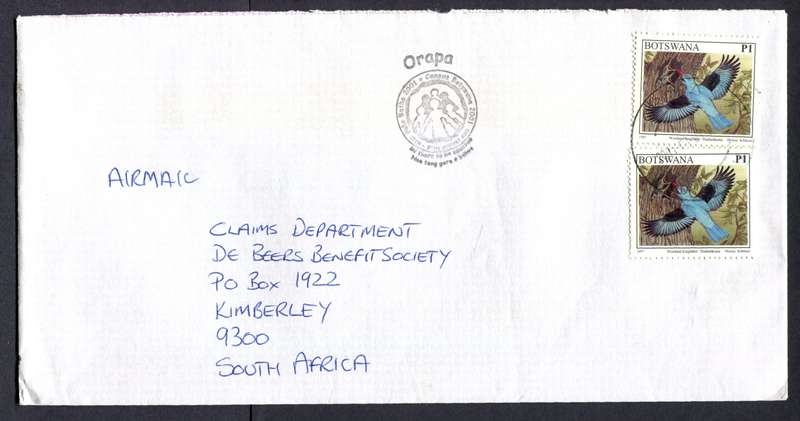 Orapa
2001 • Census Botswana 2001
BOTSWANA P1
BOTSWANA P1
AIRMAIL
CLAIMS DEPARTMENT
DE BEERS BENEFIT SOCIETY
PO BOX 1922
KIMBERLEY
9300
SOUTH AFRICA